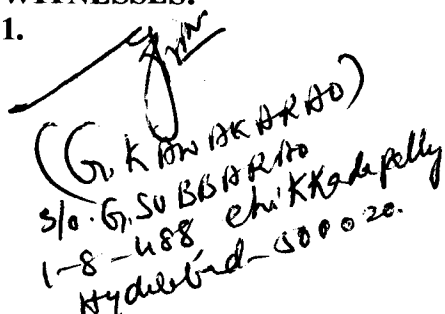 WITNESSES:
1.
(G. KANAKARAO)
S/o. G. SUBBARAO
1-8-488 chikkadapelly
Hyderabad-500020.